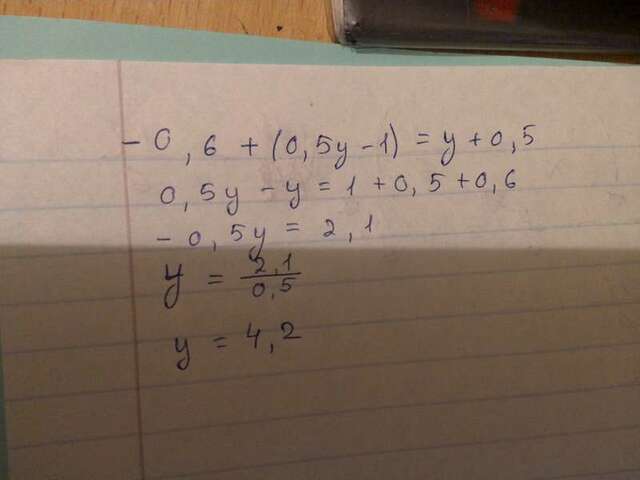 - 0,6 + (0,5y - 1) = y + 0,5
0,5y - y = 1 + 0,5 + 0,6
- 0,5y = 2,1
y = 2,1/0,5
y = 4,2